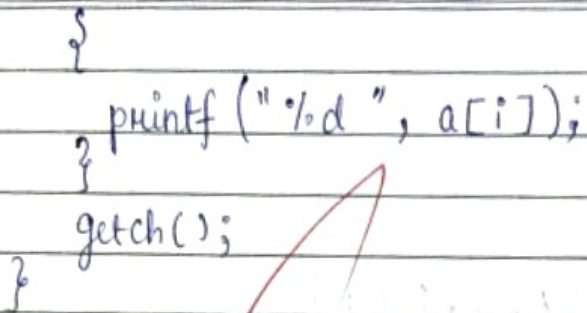 {
printf ("%d ", a[i]);
}
getch();
}